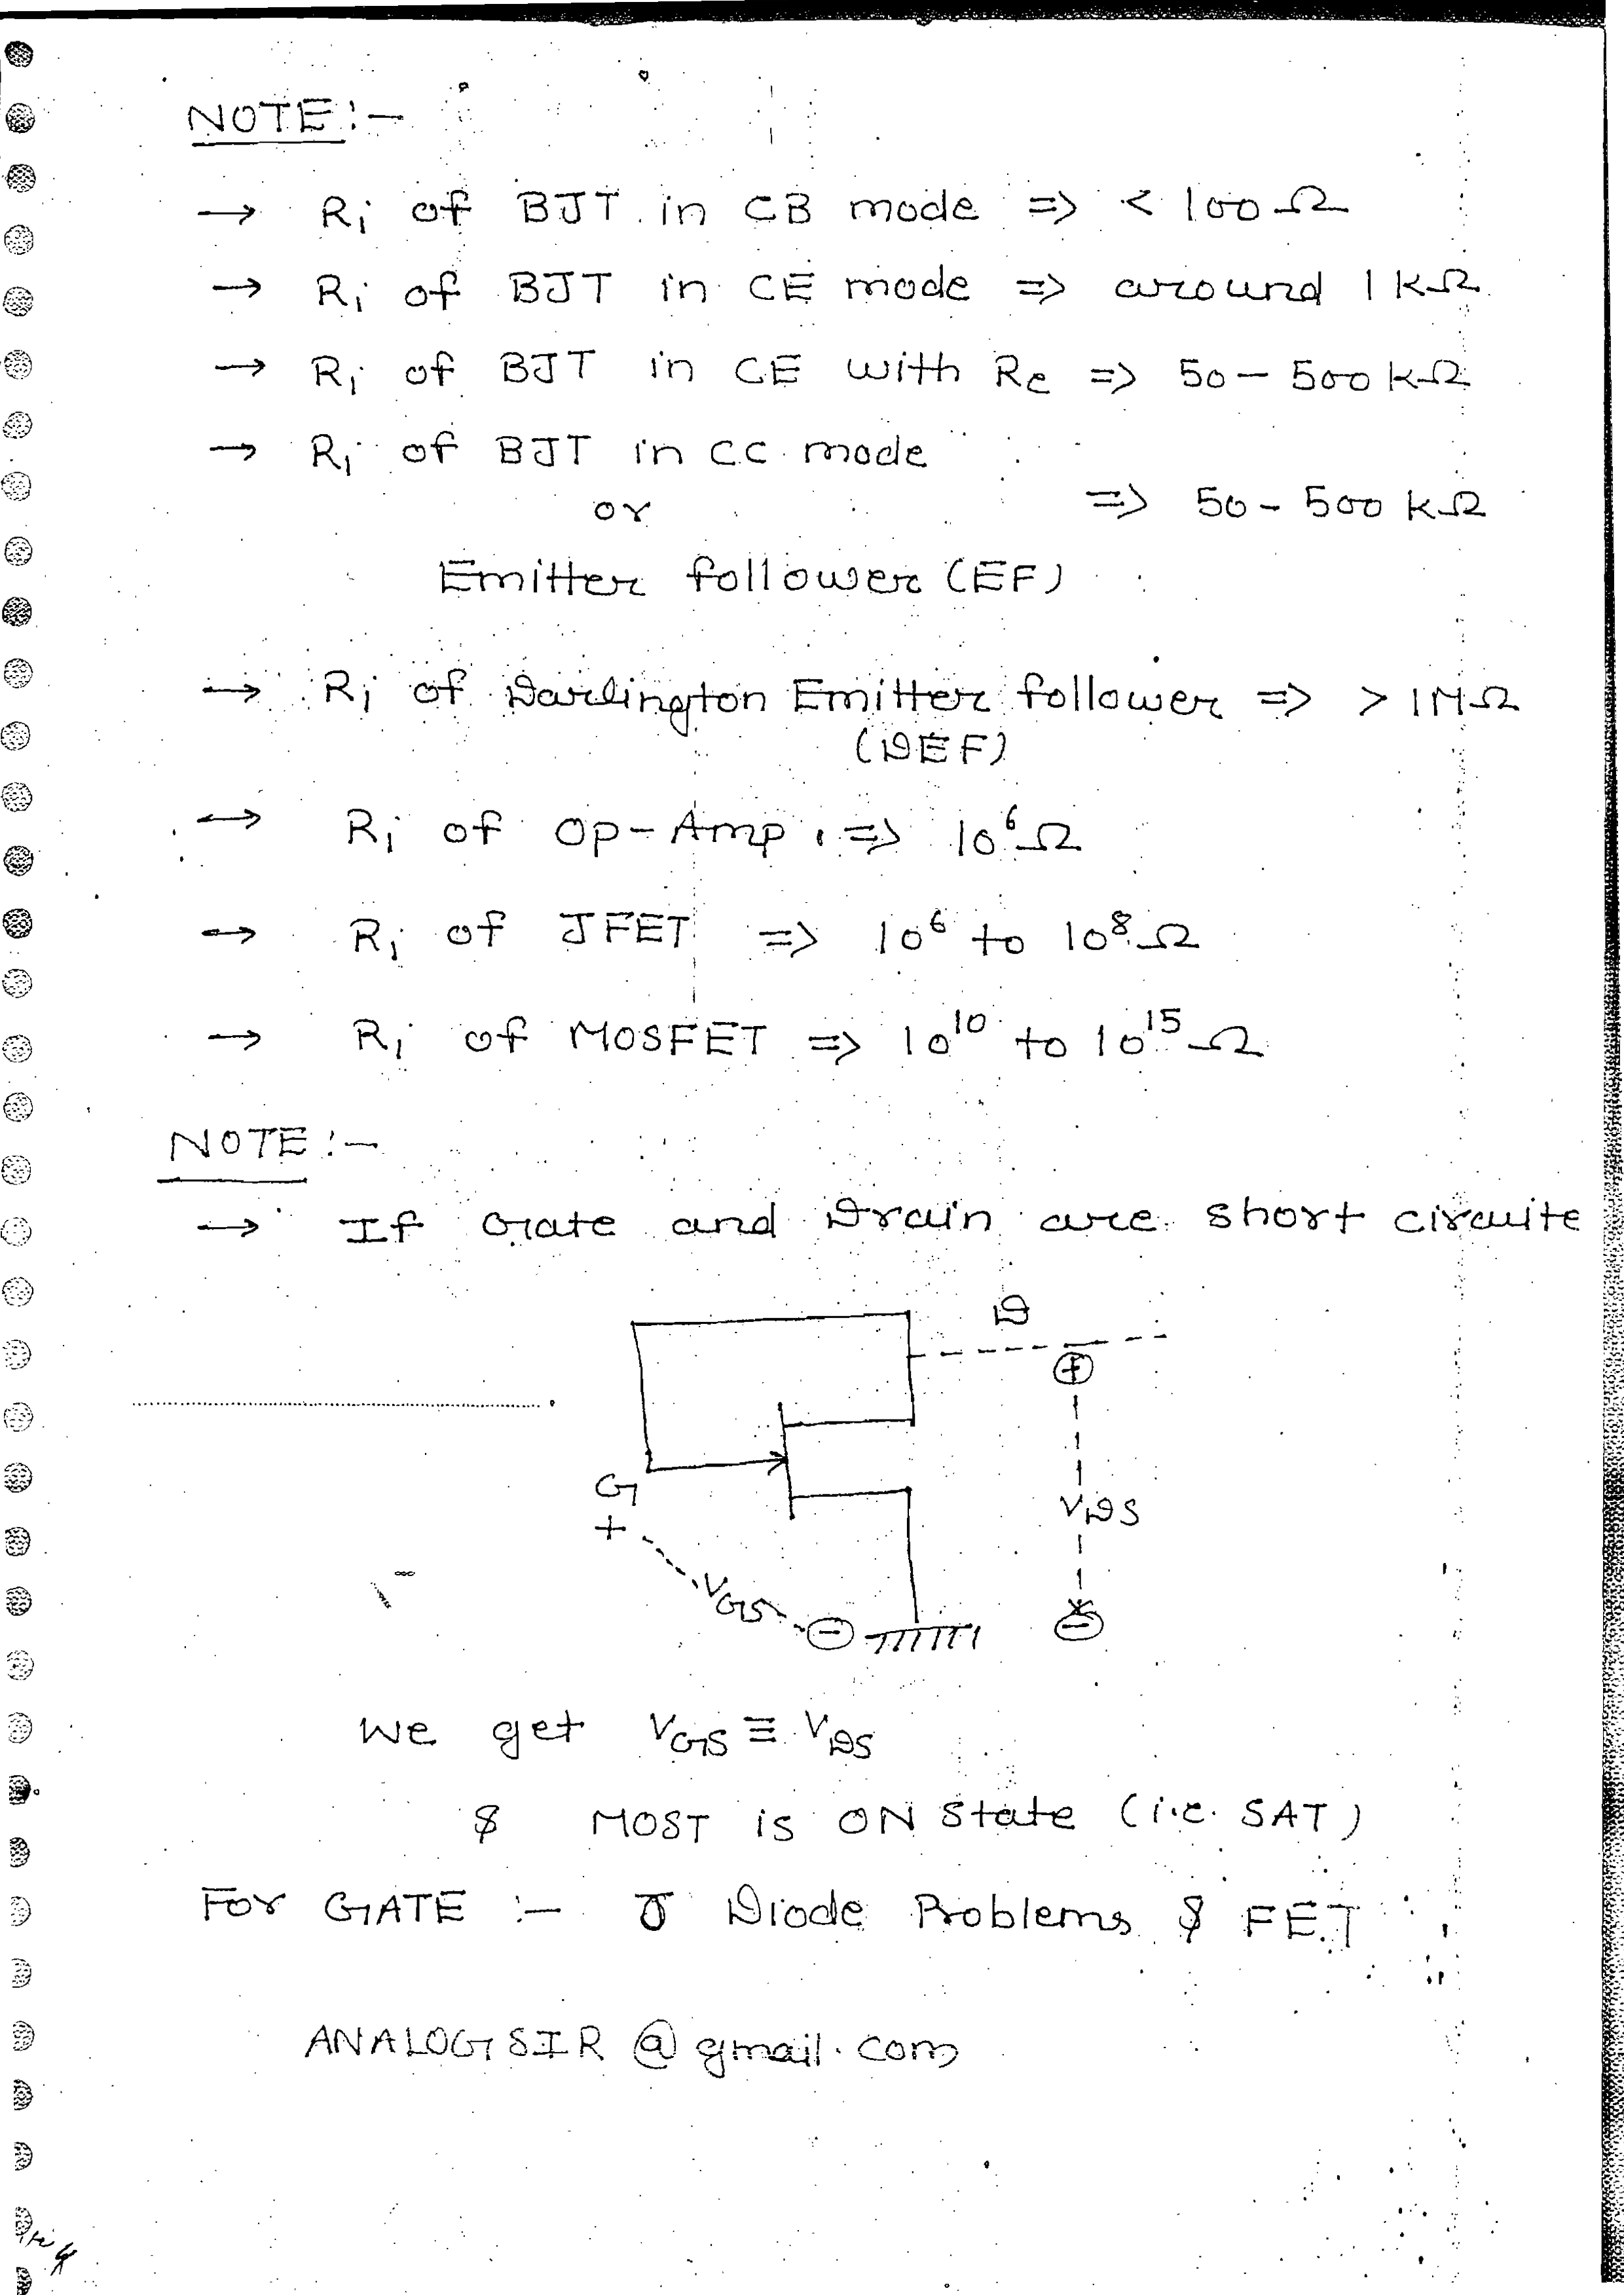 NOTE:-
→ Ri of BJT in CB mode => < 100Ω
→ Ri of BJT in CE mode => around 1 kΩ
→ Ri of BJT in CE with Re => 50 - 500 kΩ
→ Ri of BJT in CC mode
or
=> 50 - 500 kΩ
Emitter follower (EF)
→ Ri of Darlington Emitter follower => > 1MΩ
(DEF)
→ Ri of Op-Amp => 10⁶Ω
→ Ri of JFET => 10⁶ to 10⁸Ω
→ Ri of MOSFET => 10¹⁰ to 10¹⁵Ω
NOTE:-
→ If Gate and Drain are short circuite
D
+
G
VDS
+
VGS
-
-
We get VGS ≡ VDS
& MOST is ON state (i.e. SAT)
For GATE :- Diode Problems & FET
ANALOGSIR@gmail.com